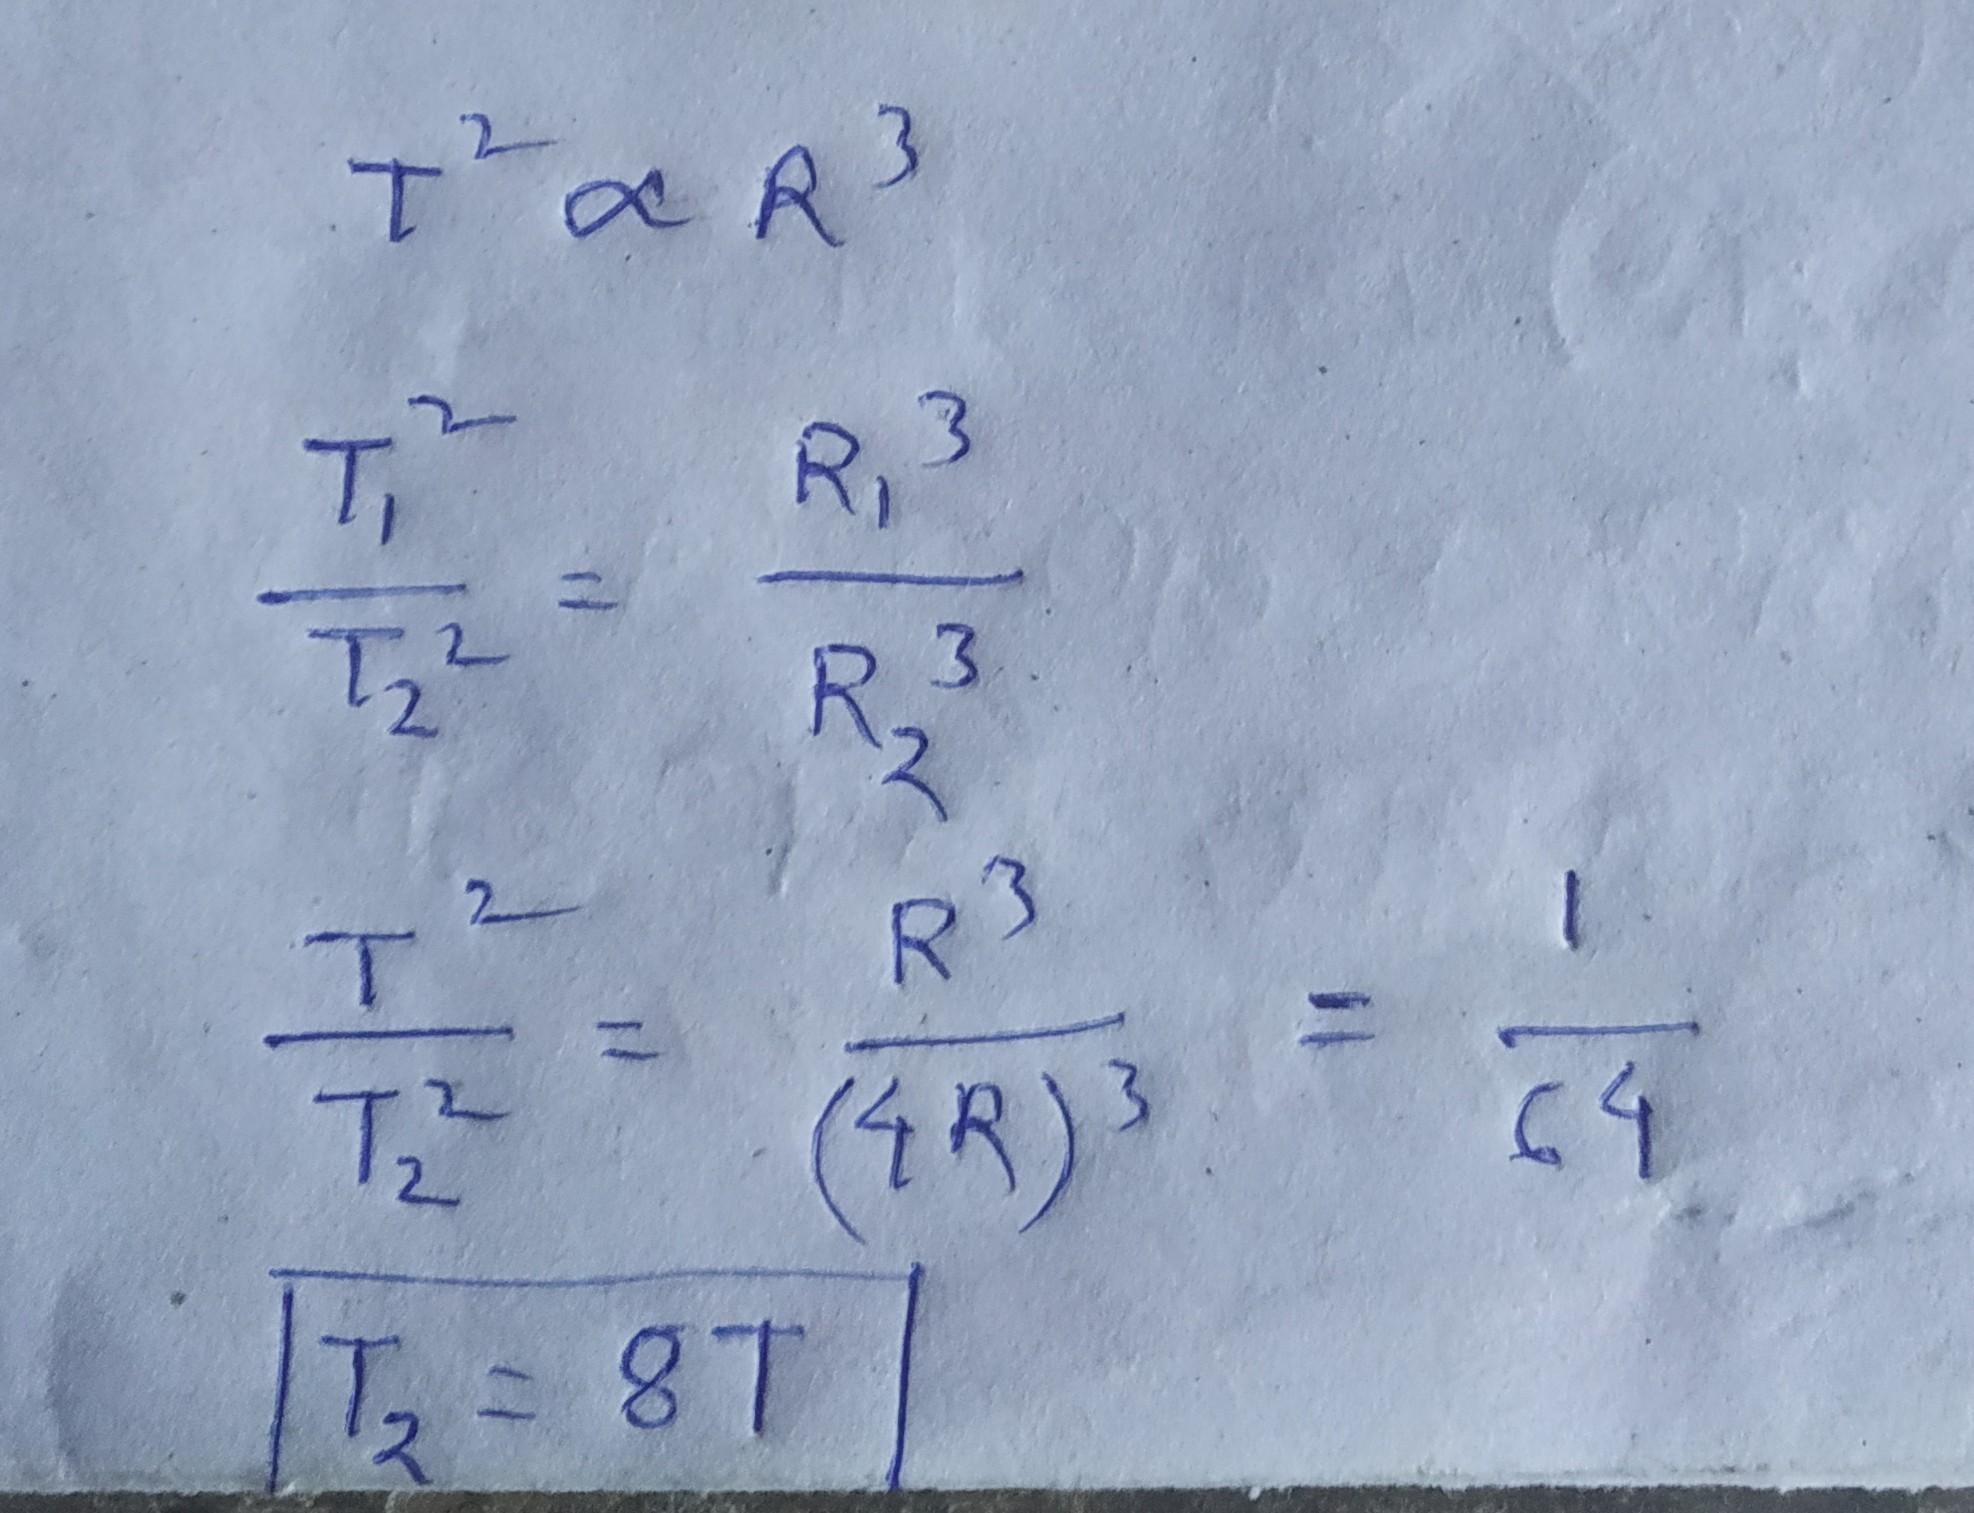 T² ∝ R³
T₁² / T₂² = R₁³ / R₂³
T² / T₂² = R³ / (4R)³ = 1 / 64
T₂ = 8T